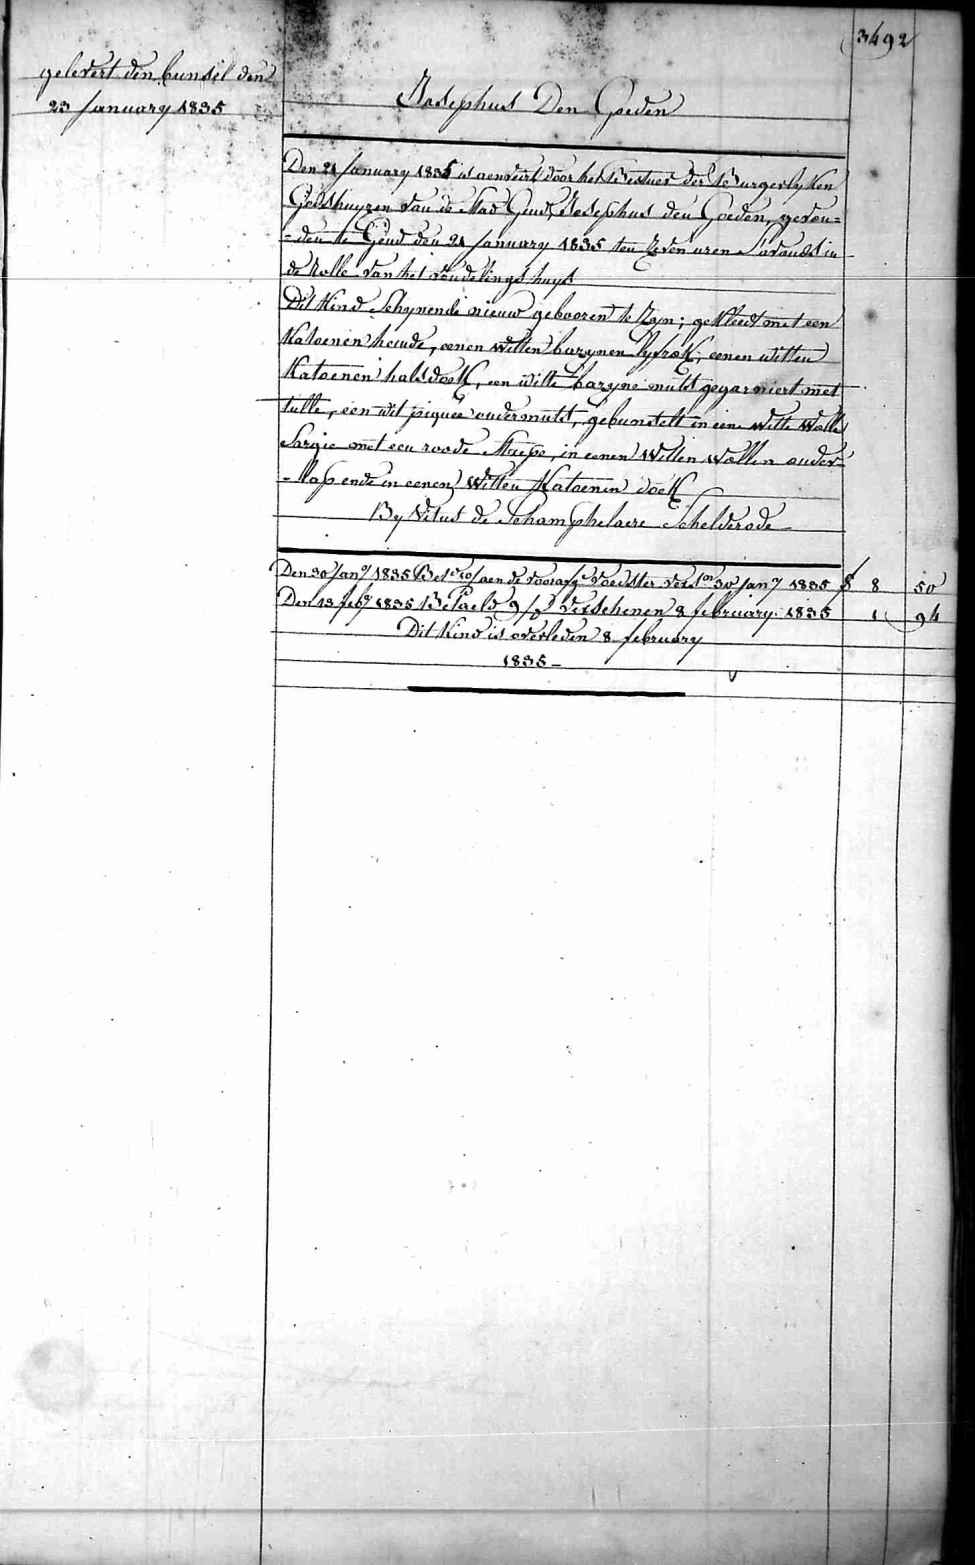 3492
gelevert den bunsel den
23 January 1835
Josephus Den Goeden
Den 21 January 1835 is aenveird door het Bestuer der Burgerlyken
Godshuyzen van de Stad Gend, Josephus den Goeden, gevon=
=den te Gend den 21 January 1835 ten zeven uren s'avonds in
de Rolle van het vondelings huys
Dit Kind Schynende nieuw gebooren te Zyn; gekleed met een
Katoenen hemde, eenen witten bazynen lyfrok, eenen witten
Katoenen halsdoek, een witte bazyne muts gegarniert met
tulle, een wit piquée ondermuts, gebunselt in eene witte wolle
Sargie met een roode Streepe, in eenen Witten Wollen onder=
=lap ende in eenen Witten Katoenen doek
By Vitus de Schamphelaere Schelderode
Den 30 Jany 1835 aen de voorsz voedster 30 Jany 1835 8 50
Den 13 feby 1835 Betaeld 9 verschenen 8 february 1835 1 94
Dit Kind is overleden 8 february
1835